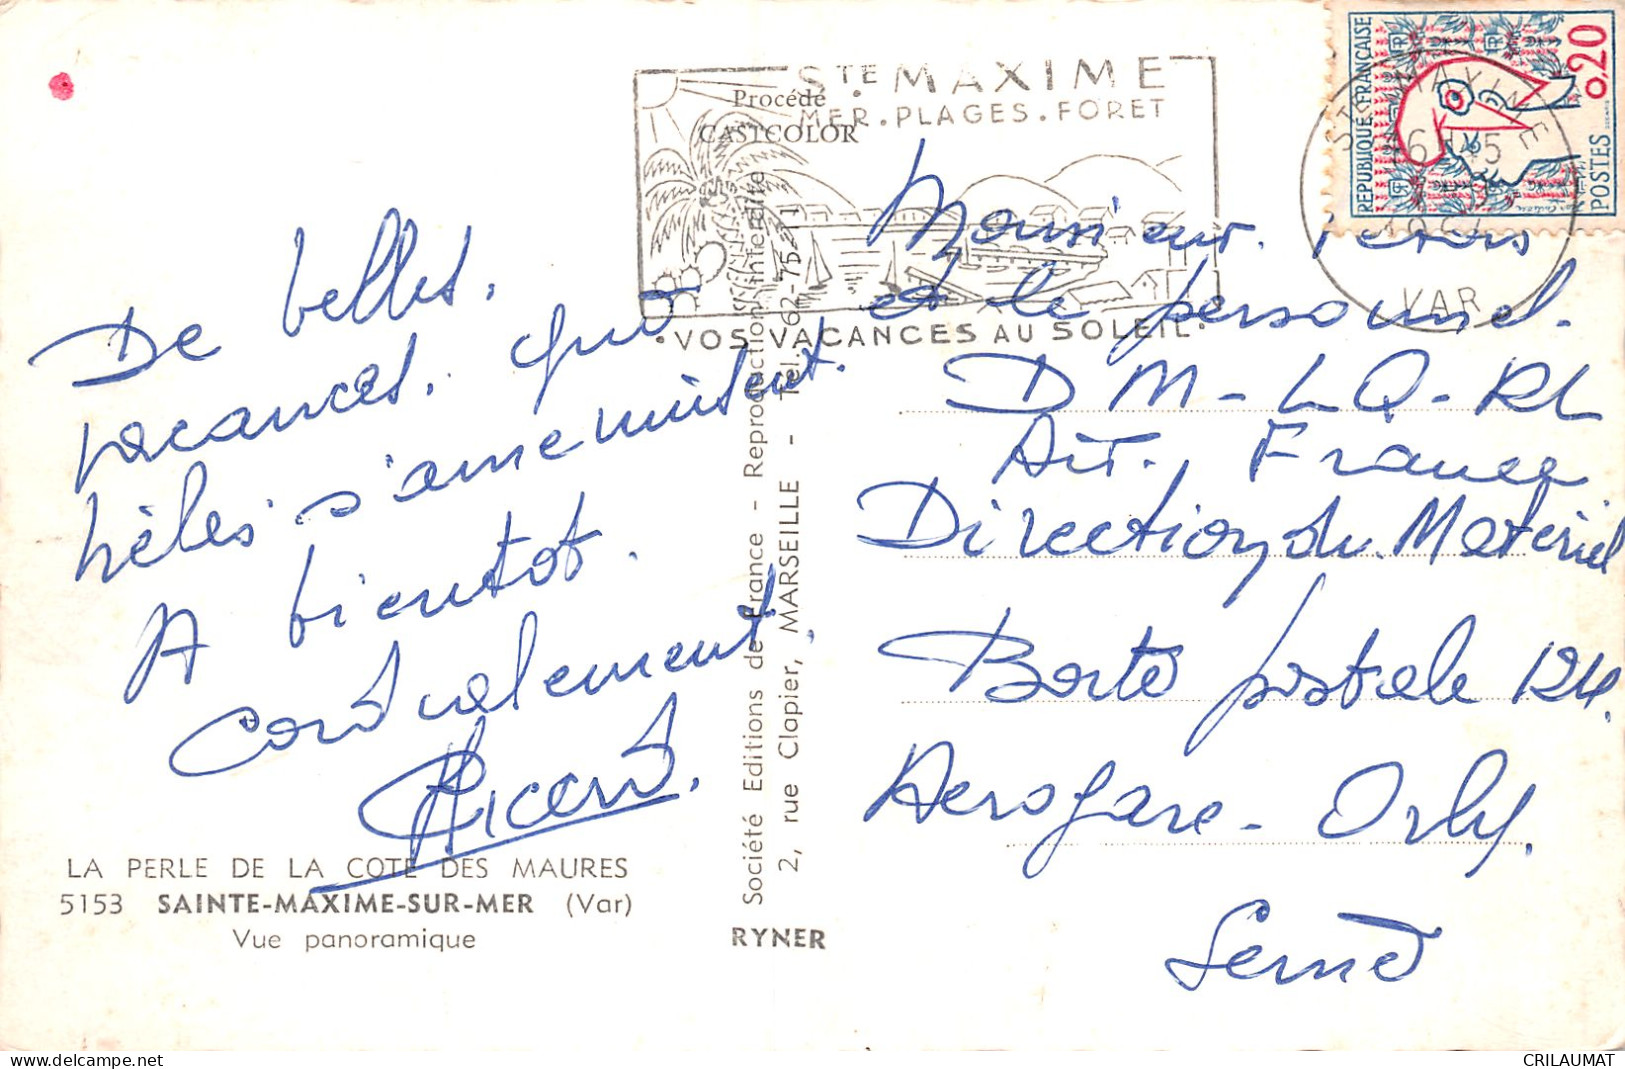 De belles
vacances, qui
hélas s'amenuisent.
A bientot.
Cordialement.
Ricard.
LA PERLE DE LA COTE DES MAURES
5153 SAINTE-MAXIME-SUR-MER (Var)
Vue panoramique
Procédé
CASTCOLOR
Société Editions de France - Reproduction interdite
2, rue Clapier, MARSEILLE - Tél. 62-75-11
RYNER
STE MAXIME
MER.PLAGES.FORET
.VOS VACANCES AU SOLEIL.
STE MAXIME
VAR
REPUBLIQUE FRANÇAISE
0,20
POSTES
Monsieur.
et le personnel.
DM-LQ-RL
Air. France
Direction du Matériel
Boite postale 124.
Aerogare - Orly.
Seine
CRILAUMAT
www.delcampe.net